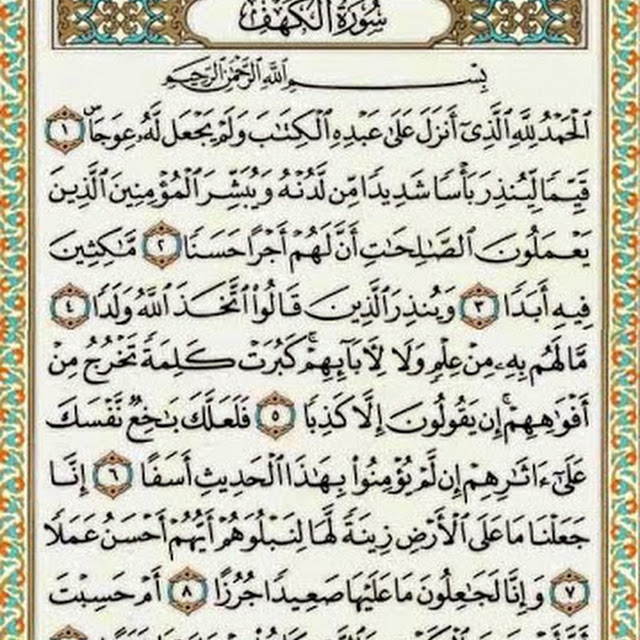 سُورَةُ الْكَهْفِ
بِسْمِ اللَّهِ الرَّحْمَٰنِ الرَّحِيمِ
الْحَمْدُ لِلَّهِ الَّذِي أَنزَلَ عَلَىٰ عَبْدِهِ الْكِتَابَ وَلَمْ يَجْعَل لَّهُ عِوَجَاۜ ١
قَيِّمًا لِّيُنذِرَ بَأْسًا شَدِيدًا مِّن لَّدُنْهُ وَيُبَشِّرَ الْمُؤْمِنِينَ الَّذِينَ
يَعْمَلُونَ الصَّالِحَاتِ أَنَّ لَهُمْ أَجْرًا حَسَنًا ٢ مَّاكِثِينَ
فِيهِ أَبَدًا ٣ وَيُنذِرَ الَّذِينَ قَالُوا اتَّخَذَ اللَّهُ وَلَدًا ٤
مَّا لَهُم بِهِ مِنْ عِلْمٍ وَلَا لِآبَائِهِمْ ۚ كَبُرَتْ كَلِمَةً تَخْرُجُ مِنْ
أَفْوَاهِهِمْ ۚ إِن يَقُولُونَ إِلَّا كَذِبًا ٥ فَلَعَلَّكَ بَاخِعٌ نَّفْسَكَ
عَلَىٰ آثَارِهِمْ إِن لَّمْ يُؤْمِنُوا بِهَٰذَا الْحَدِيثِ أَسَفًا ٦ إِنَّا
جَعَلْنَا مَا عَلَى الْأَرْضِ زِينَةً لَّهَا لِنَبْلُوَهُمْ أَيُّهُمْ أَحْسَنُ عَمَلًا
٧ وَإِنَّا لَجَاعِلُونَ مَا عَلَيْهَا صَعِيدًا جُرُزًا ٨ أَمْ حَسِبْتَ